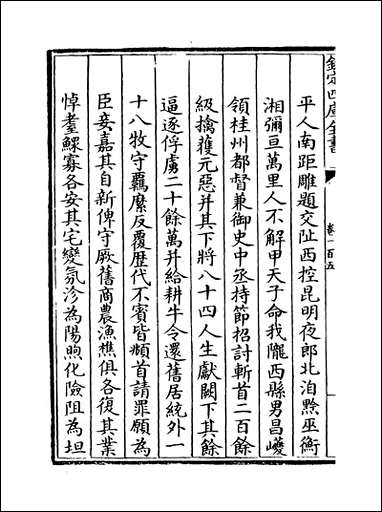 欽定四庫全書
卷一百五
平人南距雕題交阯西控昆明夜郎北洎黔巫衡
湘彌亘萬里人不解甲天子命我隴西縣男昌巙
領桂州都督兼御史中丞持節招討斬首二百餘
級擒獲元惡并其下將八十四人生獻闕下其餘
逼逐俘虜二十餘萬并給耕牛令還舊居統外一
十八牧守羈縻反覆歷代不賓皆頫首請罪願為
臣妾嘉其自新俾守厥舊商農漁樵俱各復其業
悼耋鰥寡各安其宅變氛沴為陽煦化險阻為坦